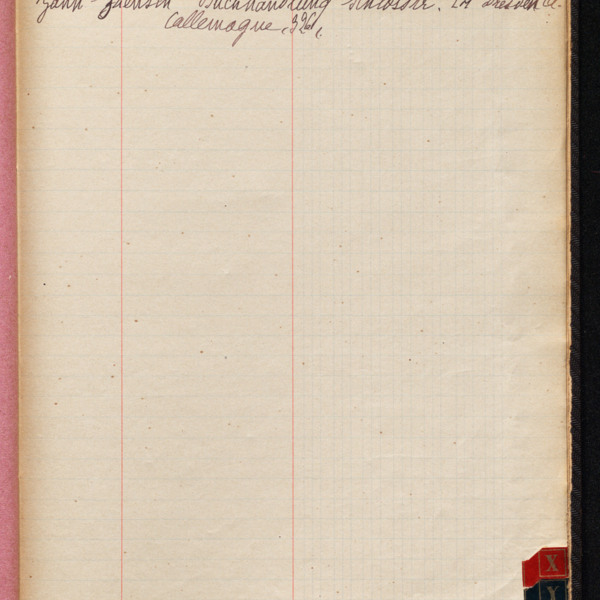 Zahn - Jaensch Buchhandlung Schlosstr. 24 Dresden A.
(allemagne, 3%),
X
Y